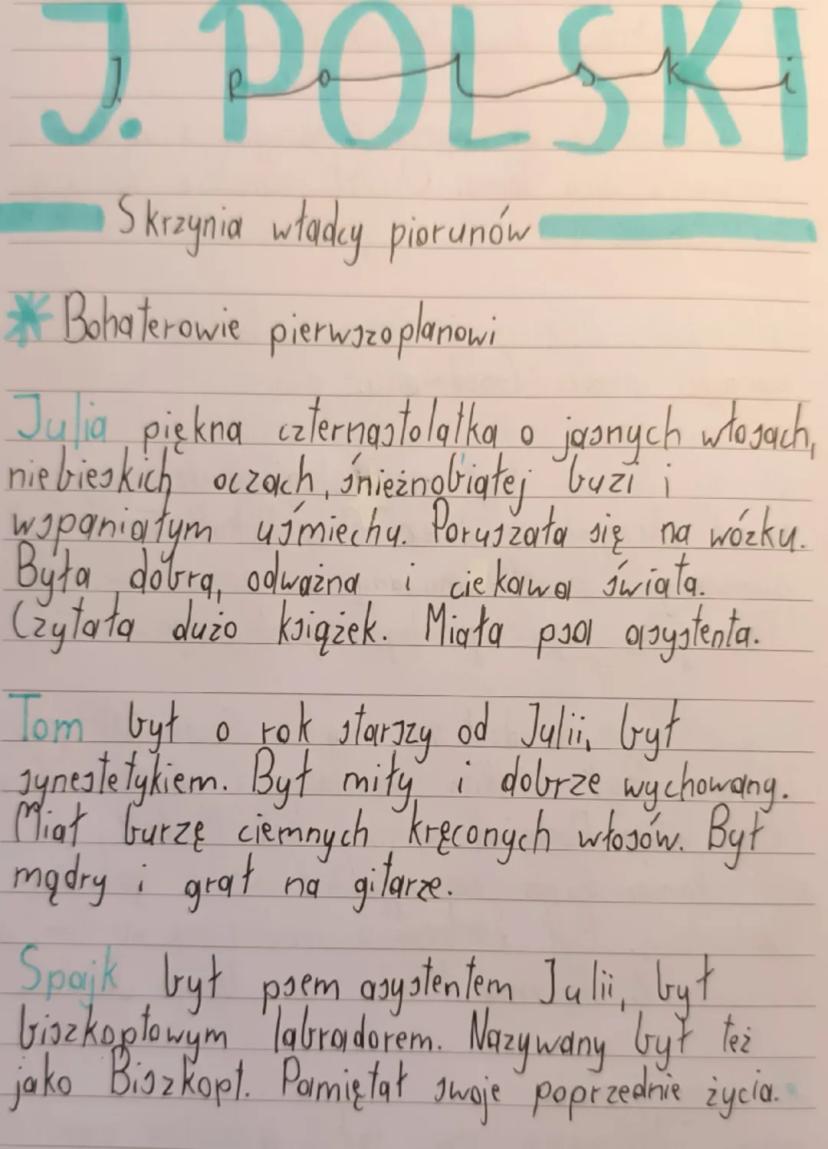 J. POLSKI
J. polski
Skrzynia władcy piorunów
Bohaterowie pierwszoplanowi
Julia piękna czternastolatka o jasnych włosach,
niebieskich oczach, śnieżnobiałej buzi i
wspaniałym uśmiechu. Poruszała się na wózku.
Była dobra, odważna i ciekawa świata.
Czytała dużo książek. Miała psa asystenta.
Tom był o rok starszy od Julii, był
synestetykiem. Był miły i dobrze wychowany.
Miał burzę ciemnych kręconych włosów. Był
mądry i grał na gitarze.
Spajk był psem asystentem Julii, był
biszkoptowym labradorem. Nazywany był też
jako Biszkopt. Pamiętał swoje poprzednie życia.